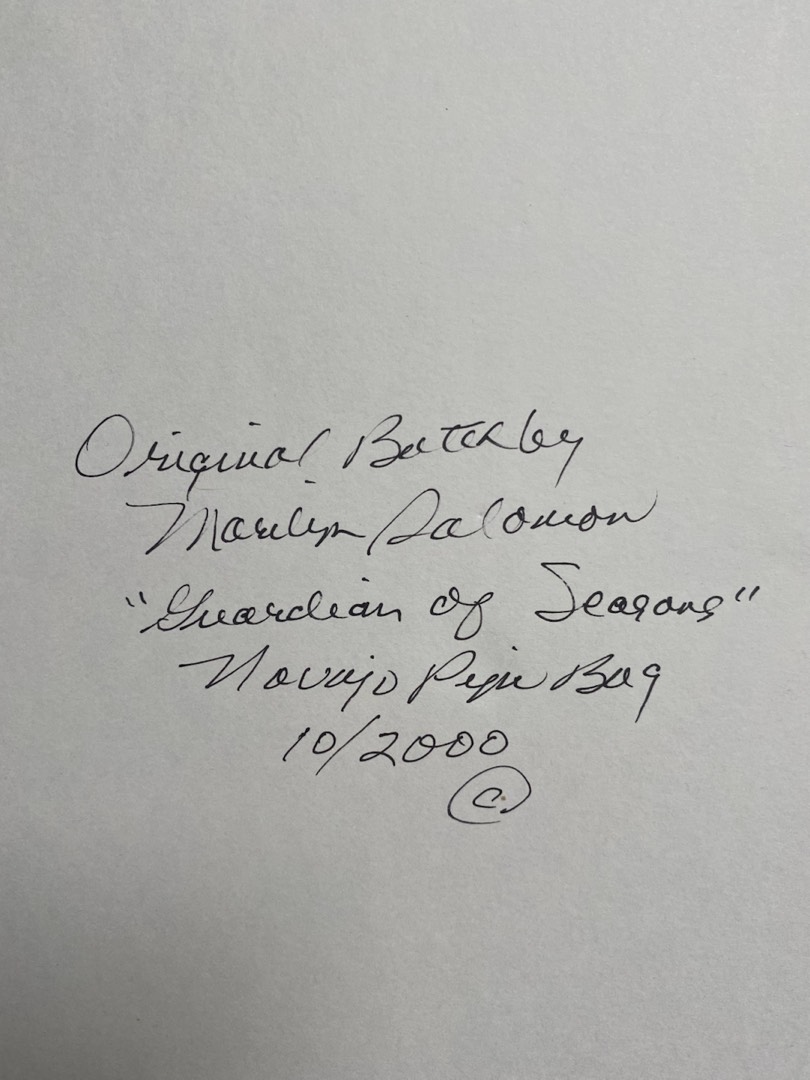 Original Batik by
Marilyn Salomon
"Guardian of Seasons"
Navajo Pipe Bag
10/2000
©